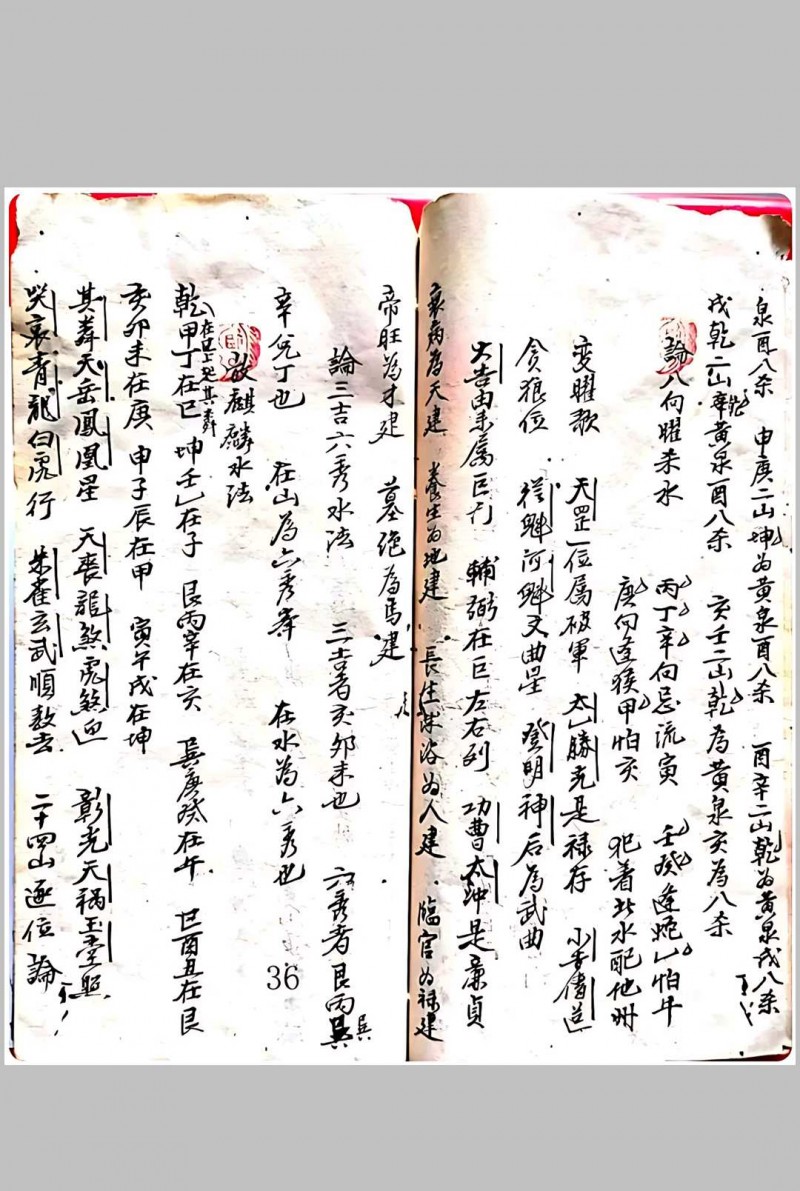 泉酉八杀 申庚二山坤为黄泉酉八杀 酉辛二山乾为黄泉戌八杀
戌乾二山辛黄泉酉八杀 亥壬二山乾為黄泉亥為八杀
論八向曜杀水 丙丁辛向忌流寅 壬癸逢蛇乙怕牛
庚向逢猴甲怕亥 犯着此水配他州
变曜歌 天罡一位属破軍 太乙勝光是禄存 小吉傳送
贪狼位 從魁河魁文曲星 登明神后為武曲
大吉由来属巨门 輔弼在巨左右列 功曹太冲是廉貞
衰病為天建 養生为地建 長生沐浴为人建 臨官为禄建
帝旺為才建 墓绝為馬建
論三吉六秀水法 三吉者亥卯未也 六秀者艮丙巽
巽
辛兌丁也 在山為六秀峯 在水為六秀也
放麒麟水法
乾甲丁在巳 坤壬乙在子 艮丙辛在亥 巽庚癸在午 巳酉丑在艮
亥卯未在庚 申子辰在甲 寅午戌在坤
其天岳鳳凰星 天喪龍煞虎煞迎 彰光天禍玉堂照
哭哀青龍白虎行 朱雀玄武順数去 二十四山逐位論
36